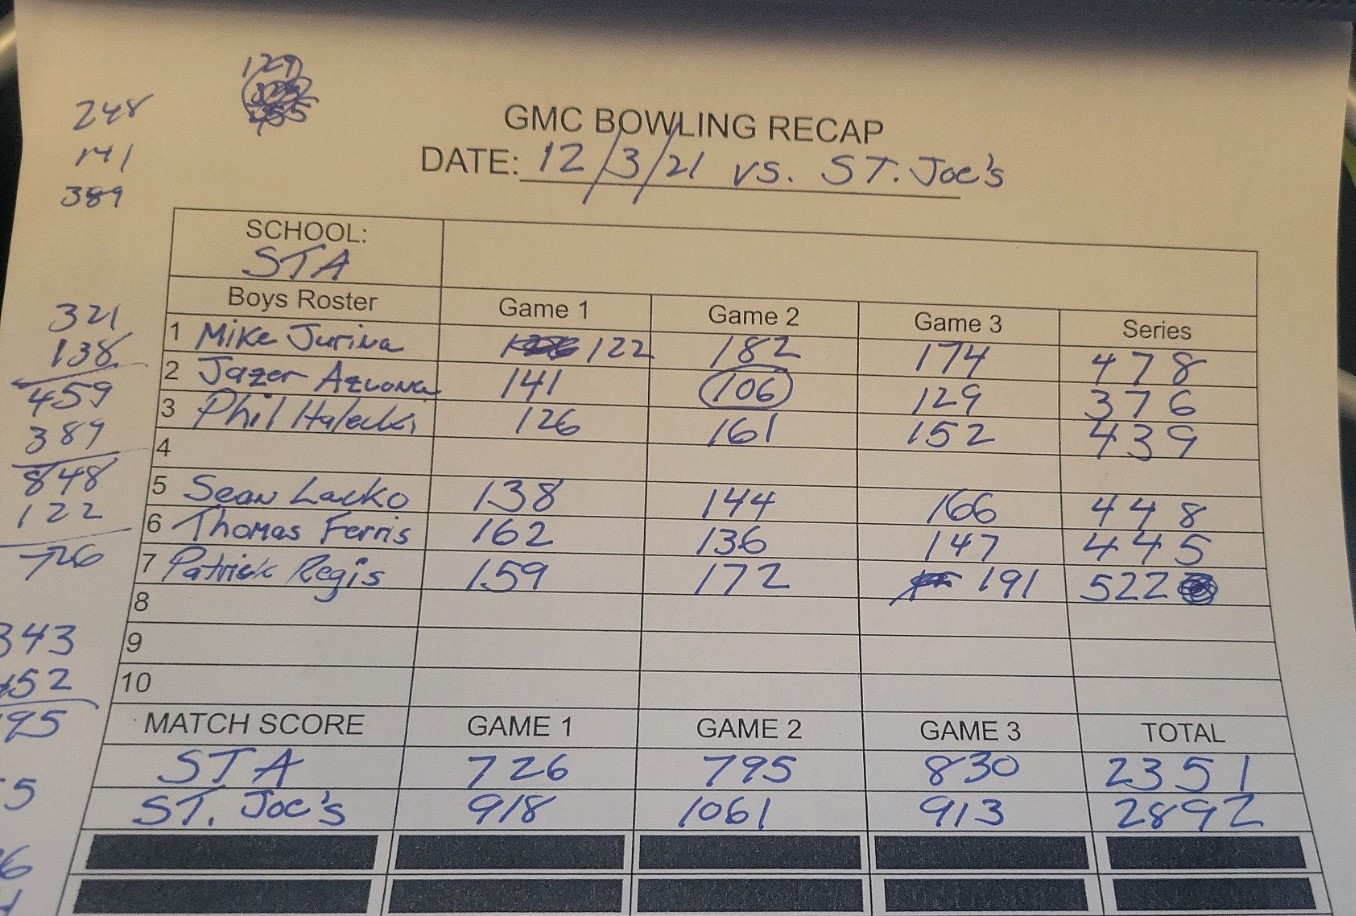 129
248
141
389
GMC BOWLING RECAP
DATE: 12/3/21 vs. ST. Joe's
SCHOOL:
STA
Boys Roster Game 1 Game 2 Game 3 Series
1 Mike Jurina 122 182 174 478
2 Jazer Azcona 141 106 129 376
3 Phil Halecki 126 161 152 439
4
5 Sean Lacko 138 144 166 448
6 Thomas Ferris 162 136 147 445
7 Patrick Regis 159 172 191 522
8
9
10
MATCH SCORE GAME 1 GAME 2 GAME 3 TOTAL
STA 726 795 830 2351
ST. Joe's 918 1061 913 2892
321
138
459
389
848
122
726
343
452
95
5
6